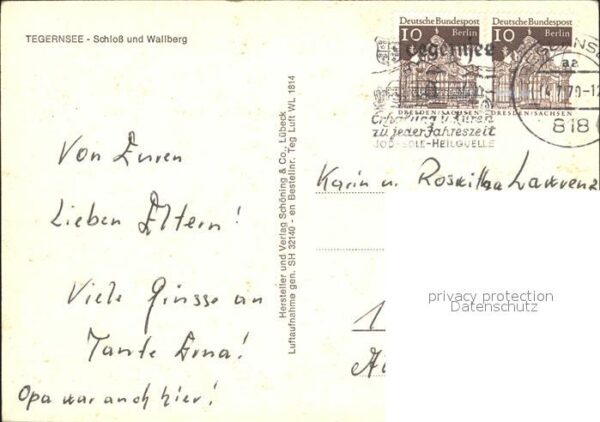 TEGERNSEE - Schloß und Wallberg
Deutsche Bundespost
10 Berlin
DRESDEN/SACHSEN
Deutsche Bundespost
10 Berlin
DRESDEN/SACHSEN
Tegernsee
Erholung u. Kuren
zu jeder Jahreszeit
JOD-SOLE-HEILQUELLE
az
818
Von Euren
Lieben Eltern!
Viele Grüsse an
Tante Erna!
Opa war auch hier!
Hersteller und Verlag Schöning & Co., Lübeck
Luftaufnahme gen. SH 32140 - en Bestellnr. Teg Luft WL 1814
Karin u.
privacy protection
Datenschutz
1